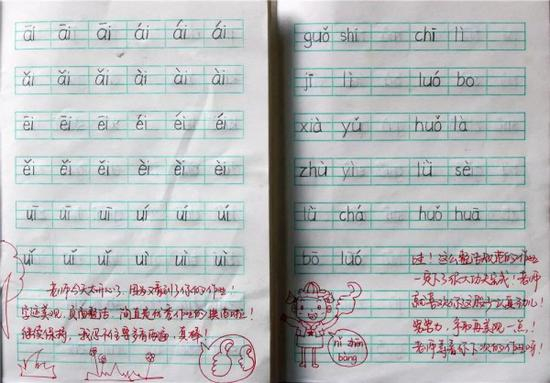 āi āi āi ái ái ái
ǎi ǎi ǎi ài ài ài
ēi ēi ēi éi éi éi
ěi ěi ěi èi èi èi
uī uī uī uí uí uí
uǐ uǐ uǐ uì uì uì
老师今天太开心了,因为又看到了你的作业!
字迹美观,页面整洁,简直是优秀作业的典范啦!
继续保持,我忍不住要多看两遍,真棒!
guǒ shí chī lì
jī lì luó bo
xià yǔ huǒ là
zhù yì lǜ sè
lǜ chá huǒ huā
bō luó
哇!这么整洁规范的作业
一定下了很大功夫完成!老师
就喜欢你这股子认真劲儿!
老师等着你下次的作业呀!
nǐ zhēn
bàng